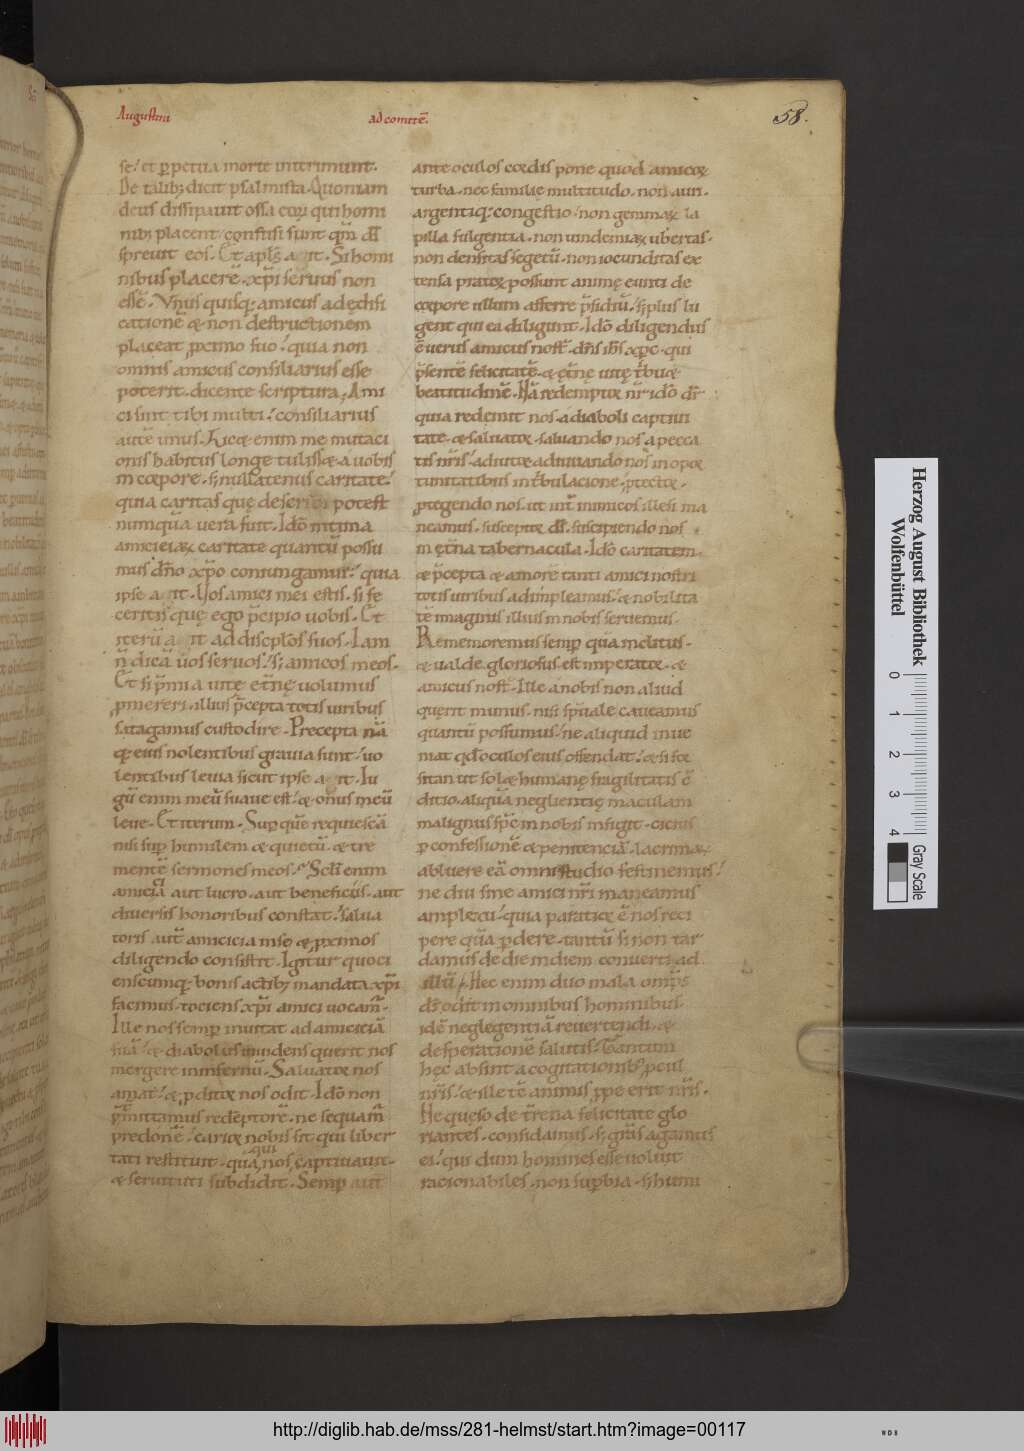 Augustini ad comitē.
58.
se. et ꝑpetua morte interimunt.
De talibꝫ dicit psalmista. Quoniam
deus dissipauit ossa eoꝝ qui homi
nibꝫ placent. confusi sunt qm̄ dš
spreuit eos. Et apl̄s a it. Si homi
nibus placerē. xp̄i seruus non
essē. Vnus quisqꝫ amicus ad edifi
cationē & non destructionem
placeat ꝓximo suo. quia non
omnis amicus consiliarius esse
poterit. dicente scriptura. Ami
ci sint tibi multi. consiliarius
autē unus. Licet enim me mutaci
onis habitus longe tulisset a uobis
in corpore. sꝫ nullatenus caritate.
quia caritas quę deseri potest
numquā uera fuit. Idō intima
amiciciaꝝ caritate quantū possu
mus dn̄o xp̄o coniungamur. quia
ipse a it. Vos amici mei estis. si fe
ceritis quę ego p̄cipio uobis. Et
iterū a it ad discipl̄os suos. Iam
n̄ dicā uos seruos. sꝫ amicos meos.
Et si p̄mia uitę et̄nę uolumus
ꝓmereri. illius p̄cepta totis uiribus
satagamus custodire. Precepta nā
qꝫ eius nolentibus grauia sunt. uo
lentibus leuia sicut ipse a it. Iu
gū enim meū suaue est. & onus meū
leue. Et iterum. Suꝑ quē requiescā
nisi suꝑ humilem & quietū. & tre
mentē sermones meos. Sed enim
amicicia aut lucro. aut beneficiis. aut
diuersis honoribus constat. salua
toris autē amicicia in se & ꝓximos
diligendo consistit. Igitur quoci
enscumqꝫ bonis actibꝫ mandata xp̄i
facimus. tociens xp̄i amici uocam̄.
Ille nos semꝑ inuitat ad amiciciā
suā. & diabolus inuidens querit nos
mergere in infernū. Saluator nos
amat. & ꝑditor nos odit. Idō non
p̄mittamus redēptorē. ne sequam̄
predonē. carior nobis sit qui liber
tati restituit. quā qui nos captiuauit.
& seruituti subdidit. Semꝑ aut
ante oculos cordis pone quod amicoꝝ
turba. nec familię multitudo. non auri.
argentiqꝫ congestio. non gemmaꝝ la
pilla fulgentia. non uindemiaꝝ ubertas.
non densitas segetū. non iocunditas ex
tensa pratoꝝ possunt animę eunti de
corpore ullum afferre p̄sidiū. sꝫ plus lu
gent qui ea diligunt. Idō diligendus
ē uerus amicus nost̄. dn̄s ihs̄ xp̄c. qui
p̄sentē felicitatē. & et̄nę uitę t̄buet
beatitudinē. Nā redemptor nr̄ idō dr̄
quia redemit nos. a diaboli captiui
tate. & saluator. saluando nos a pecca
tis nr̄is. adiutor adiuuando nos in opor
tunitatibus in t̄bulacione. ꝓtector.
ꝓtegendo nos. ut int̄ inimicos illesi ma
neamus. susceptor dr̄. suscipiendo nos
in et̄na tabernacula. Idō caritatem.
& p̄cepta & amorē tanti amici nostri
totis uiribus adimpleamus. & nobilita
tē imaginis illius in nobis seruemus.
Rememoremus semꝑ quā inclitus.
& ualde gloriosus est imperator. &
amicus nost̄. Ille a nobis non aliud
querit munus. nisi sp̄uale caueamus
quantū possumus. ne aliquid inue
niat qd̄ oculos eius offendat. & si for
sitan ut solet humanę fragilitatis cō
ditio. aliquā neglientię maculam
malignus sp̄c in nobis infigit. cicius
ꝑ confessionē & penitenciā. lacrimaꝝ
abluere eā omni studio festinemus.
ne diu sine amici nr̄i maneamus
amplexu. quia paratior ē nos reci
pere quā ꝑdere. tantū si non tar
damus de die in diem conuerti ad
illū. Hec enim duo mala omp̄s
ds̄ odit in omnibus hominibus.
idē neglegentiā reuertendi. &
desperationē salutis. Tantum
hec absint a cogitationibꝫ ꝓcul
nr̄is. & ille tē animis ꝓpe erit nr̄is.
Ne queso de t̄rena felicitate glo
riantes. confidamus. sꝫ gr̄as agamus
ei. qui dum homines esse uoluit
racionabiles. non suꝑbia. sꝫ humi
Herzog August Bibliothek
Wolfenbüttel
0 1 2 3 4
Gray Scale
http://diglib.hab.de/mss/281-helmst/start.htm?image=00117
WDB